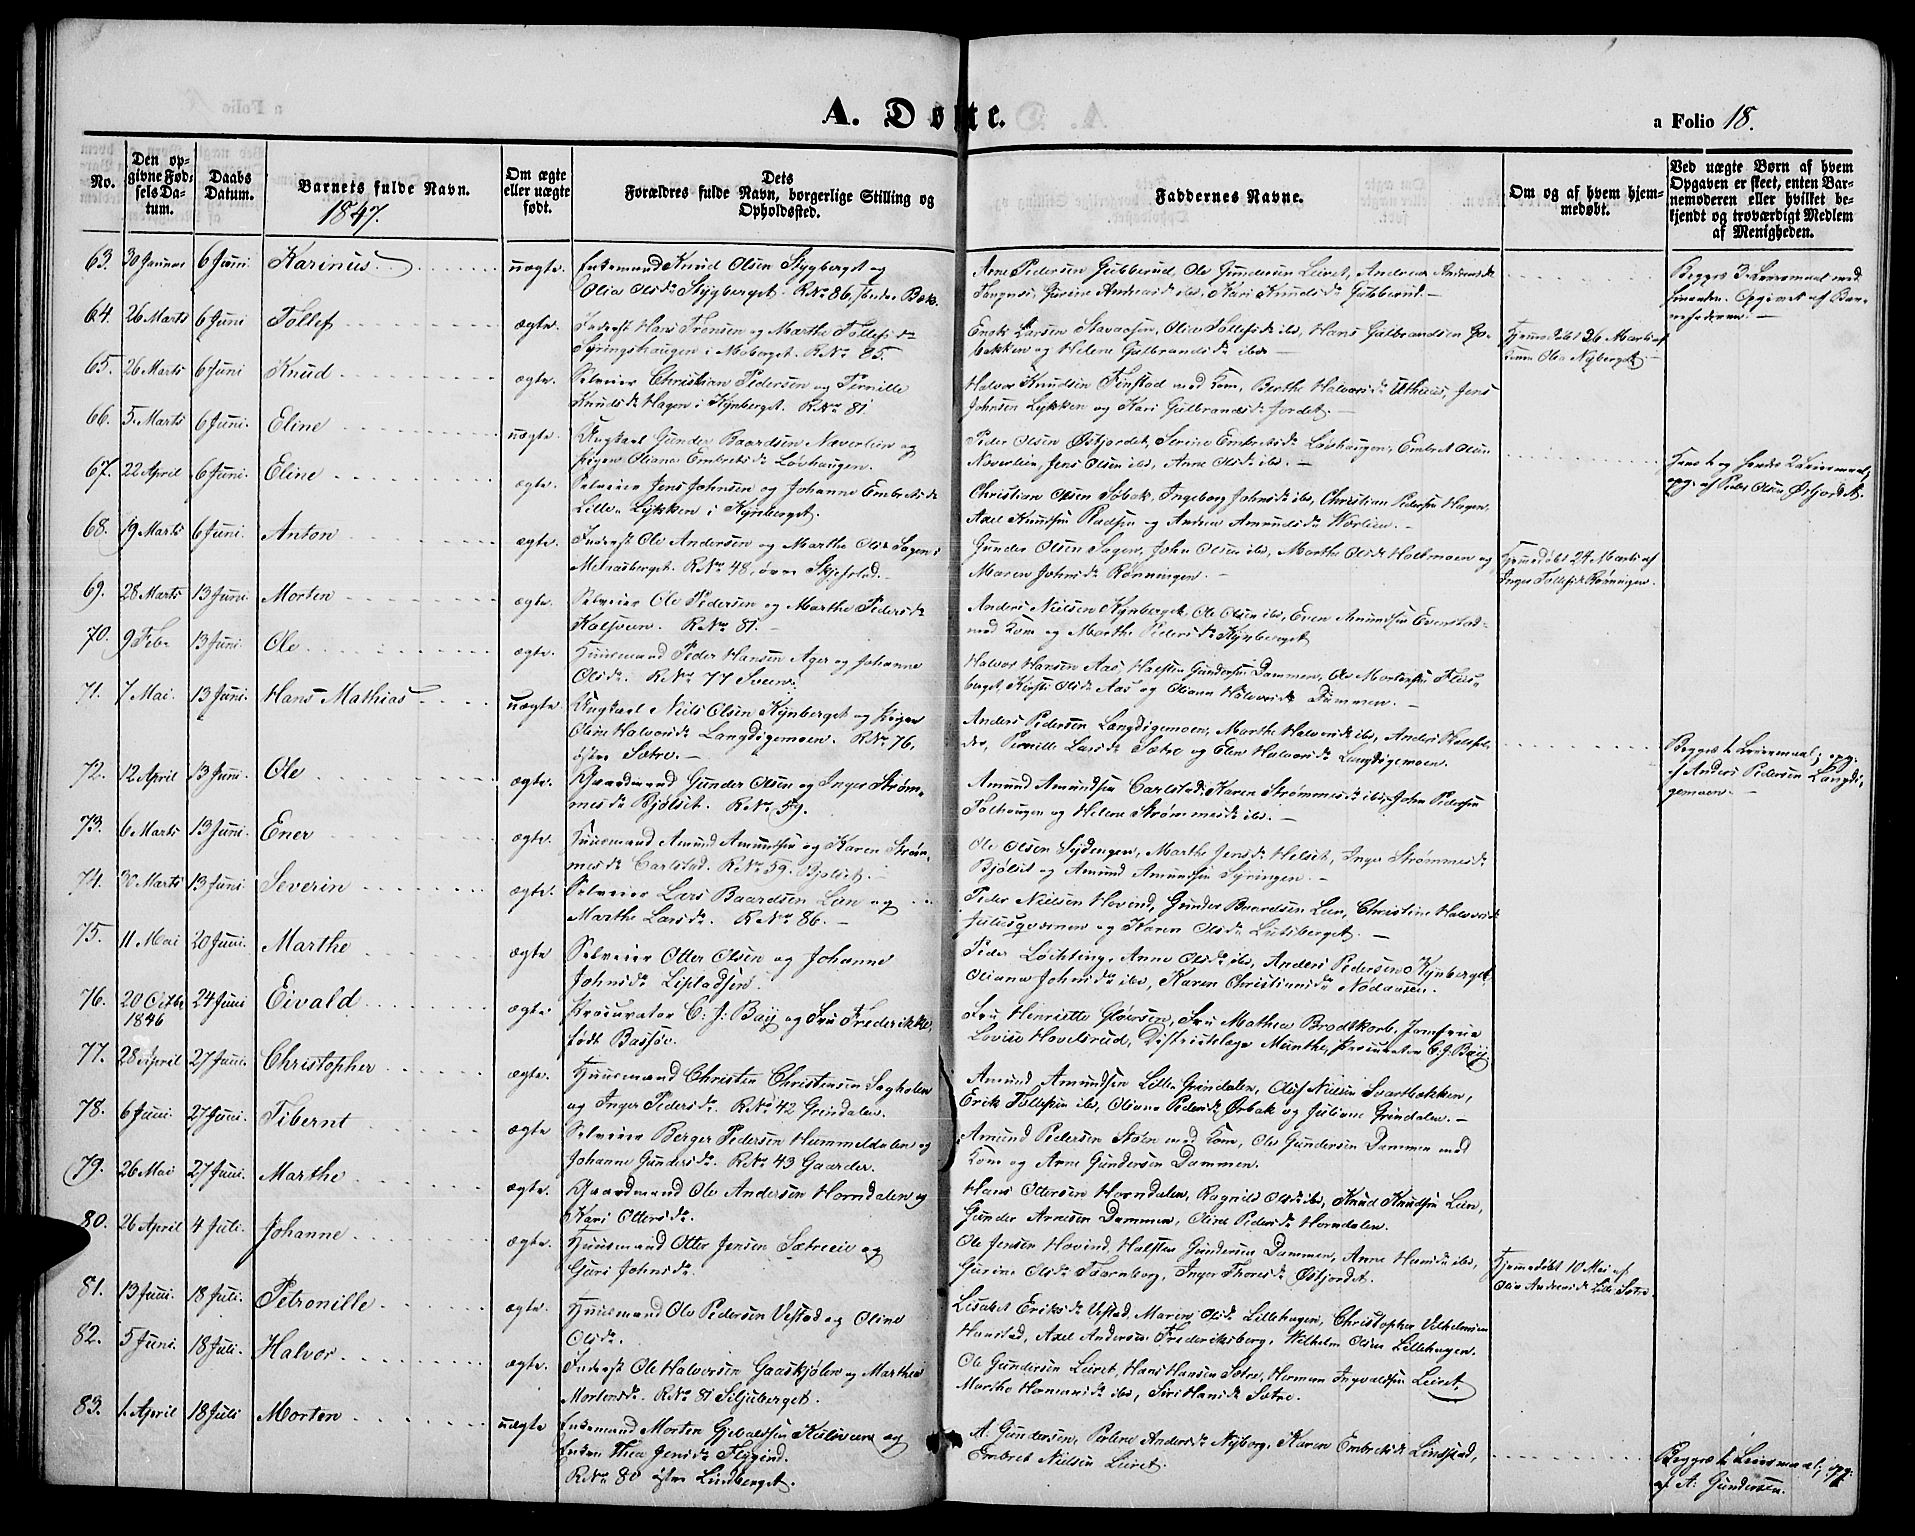 A. Døbte.
a Folio 18.
No.
Den opgivne Fødsels Datum.
Daabs Datum.
Barnets fulde Navn.
1847.
Om ægte eller uægte født.
Dets Forældres fulde Navn, borgerlige Stilling og Opholdssted.
Faddernes Navne.
Om og af hvem hjemmedøbt.
Ved uægte Børn af hvem Opgaven er skeet, enten Barnemoderen eller hvilket bekjendt og troværdigt Medlem af Menigheden.
63. 30 Januar 6 Juni Karinus uægte. Enkemand Knud Olsen Stygberget og
Olia Olsdr Stygberget. R.No 86, Bæk.
Arne Pedersen Gubberud, Ole Gundersen Leiret, Andreas
Gurine Andreasdr ibd, Kari Knudsdr Gubberud.
Begges 3. Leiermaal med
hinanden. Opgivet af Barnefaderen.
64. 26 Marts 6 Juni Tollef ægte. Inderst Hans Frensen og Marthe Tollefsdr
Syringshaugen i Moberget. R.No 85.
Erik Larsen Stavaasen, Olia Tollefsdr ibd, Hans Gulbrandsen
og Helene Gulbrandsdr ibd
Hjemmedøbt 26 Marts af
Olia Nyberget.
65. 26 Marts 6 Juni Knud ægte. Selveier Christian Pedersen og Pernille
Knudsdr Hagen i Kynberget. R.No 81
Halvor Knudsen Finstad med Kone, Berthe Halvorsdr Utheus, Jens
Johnsen Lykken og Kari Gulbrandsdr Jordet.
66. 5 Marts 6 Juni. Eline uægte. Ungkarl Gunder Baardsen Næverlien og
Pigen Oliana Embretsdr Løvhaugen.
Peder Olsen Østjordet, Serine Embretsdr Løvhaugen, Embret Olsen
Næverlien, Jens Olsen ibd, Anne Olsdr ibd.
Hans 1. og hendes 2 Leiermaal,
opg. af Peder Olsen Østjordet.
67. 22 April 6 Juni. Eline ægte. Selveier Jens Johnsen og Johanne Embretsdr
Lille Lykken i Kynberget.
Christian Olsen Søbak, Ingeborg Johnsdr ibd, Christian Pedersen Hagen,
Axel Knudsen og Andrea Amundsdr
68. 19 Marts 6 Juni. Anton ægte. Inderst Ole Andersen og Marthe Olsdr Sagen i
R.No 48, øvre Skjefstad.
Gunder Olsen Sagen, John Olsen ibd, Marthe Olsdr Holtmoen og
Maren Johnsdr Rønningen.
Hjemmedøbt 24 Marts af
Inger Tollefsdr Rønningen.
69. 28 Marts 13 Juni. Morten ægte. Selveier Ole Pedersen og Marthe Pedersdr
Kalsveen. R.No 81.
Anders Nielsen Kynberget, Ole Olsen ibd, Even Amundsen Evenstad
med Kone og Marthe Pedersdr Kynberget
70. 9 Feb. 13 Juni. Ole ægte. Huusmand Peder Hansen Ager og Johanne
Olsdr. R.No 77 Sveen.
Halvor Hansen Aas, Halsten Gundersen Dammen, Ole Mortensen
Kirsti Olsdr Aas og Oliana Halvorsdr Dammen.
71. 7 Mai. 13 Juni. Hans Mathias uægte. Ungkarl Niels Olsen Kynberget og Pigen
Oline Halvorsdr Langdigemoen. R.No 76,
østre Sætre.
Anders Pedersen Langdigemoen, Marthe Halvorsdr ibd, Anders
Pernille Larsdr Sætre og Elen Halvorsdr Langdigemoen.
Begges 1. Leiermaal, opg.
af Anders Pedersen Langdigemoen.
72. 12 April 13 Juni. Ole ægte. Gaardmand Gunder Olsen og Inger Strømmesdr Bjølset. R.No. 59.
Amund Amundsen Carlstad, Karen Strømmesdr ibd, John Pedersen
Tolhaugen og Helene Strømmesdr ibd.
73. 6 Marts 13 Juni. Ener ægte. Huusmand Amund Amundsen og Karen Strømmesdr Carlstad. R.No 59. Bjølset.
Ole Olsen Sydengen, Marthe Jensdr Helset, Inger Strømmesdr
Bjølset og Amund Amundsen Syringen.
74. 30 Marts 13 Juni Severin ægte. Selveier Lars Baardsen Lien og
Marthe Larsdr. R.No 86.
Peder Nielsen Hovind, Gunder Baardsen Lien, Christine Halvorsdr
Juliusqværnen og Karen Olsdr
75. 11 Mai 20 Juni. Marthe ægte Selveier Otter Olsen og Johanne
Johnsdr
Peder Løchting, Anne Olsdr ibd, Anders Pedersen Kynberget,
Oliana Johnsdr ibd, Karen Christiansdr Nodaasen.
76. 20 Octbr 1846 24 Juni Eivald ægte. Procurator C. J. Bay og Fru Frederikke,
født Bassøe.
Fru Henriette Gløersen, Fru Mathea Brodtkorb, Jomfrue
Lovise Hovelsrud, Districtslæge Munthe, Procurator C. J. Bay
77. 28 April 27 Juni. Christopher ægte. Huusmand Christen Christensen Sagholen
og Inger Pedersdr. R.No 42 Grindalen.
Amund Amundsen Lille Grindalen, Oluf Nielsen Svartbækken,
Erik Tollefsen ibd, Oliane Pedersdr Ørbak og Juliane Grindalen.
78. 6 Juni 27 Juni. Tibernt ægte Selveier Berger Pedersen Hummeldalen og
Johanne Gundersdr. R.No 43 Gaarder.
Amund Pedersen Sætre med Kone, Ole Gundersen Dammen med
Kone og Arne Gundersen Dammen.
79. 26 Mai 27 Juni. Marthe ægte. Gaardmand Ole Andersen Horndalen og
Kari Ottersdr.
Hans Ottersen Horndalen, Ragnild Olsdr ibd, Knud Knudsen Lien,
Gunder Arnesen Dammen, Oline Pedersdr Horndalen.
80. 26 April 4 Juli. Johanne ægte. Huusmand Otter Jensen Sætreeie og
Guri Johnsdr.
Ole Jensen Hovind, Halsten Gundersen Dammen, Anne Hansdr ibd,
Gurine Olsdr Taarnborg, Inger Thoresdr Østjordet.
Hjemmedøbt 10 Mai af
Olia Andersdr Lille Sætre.
81. 13 Juni. 18 Juli. Petronille ægte. Huusmand Ole Pedersen Vestad og Oline
Olsdr.
Lisabet Eriksdr Vestad, Maren Olsdr Lillehagen, Christopher Vilhelmsen
Hanstad, Axel Andersen Frederiksberg, Wilhelm Olsen Lillehagen.
82. 5 Juni. 18 Juli. Halvor ægte. Inderst Ole Halvorsen Gaaskjølen og Marthea
Mortensdr. R.No 81 Siljuberget.
Ole Gundersen Leiret, Hans Hansen Sætre, Herman Ingvaldsen Leiret,
Marthe Hermansdr ibd, Siri Hansdr Sætre.
83. 1 April 18 Juli Morten uægte Enkemand Morten Gjevaldsen Kulsveen og
Enken Thea Jensdr Flygind.
R.No 80 østre Lindberget.
A. Gundersen, Perline Andersdr Nyborg, Karen Embretsdr Lindstad,
Embret Nielsen Leiret.
Begges 1. Leiermaal, opg.
af A. Gundersen.